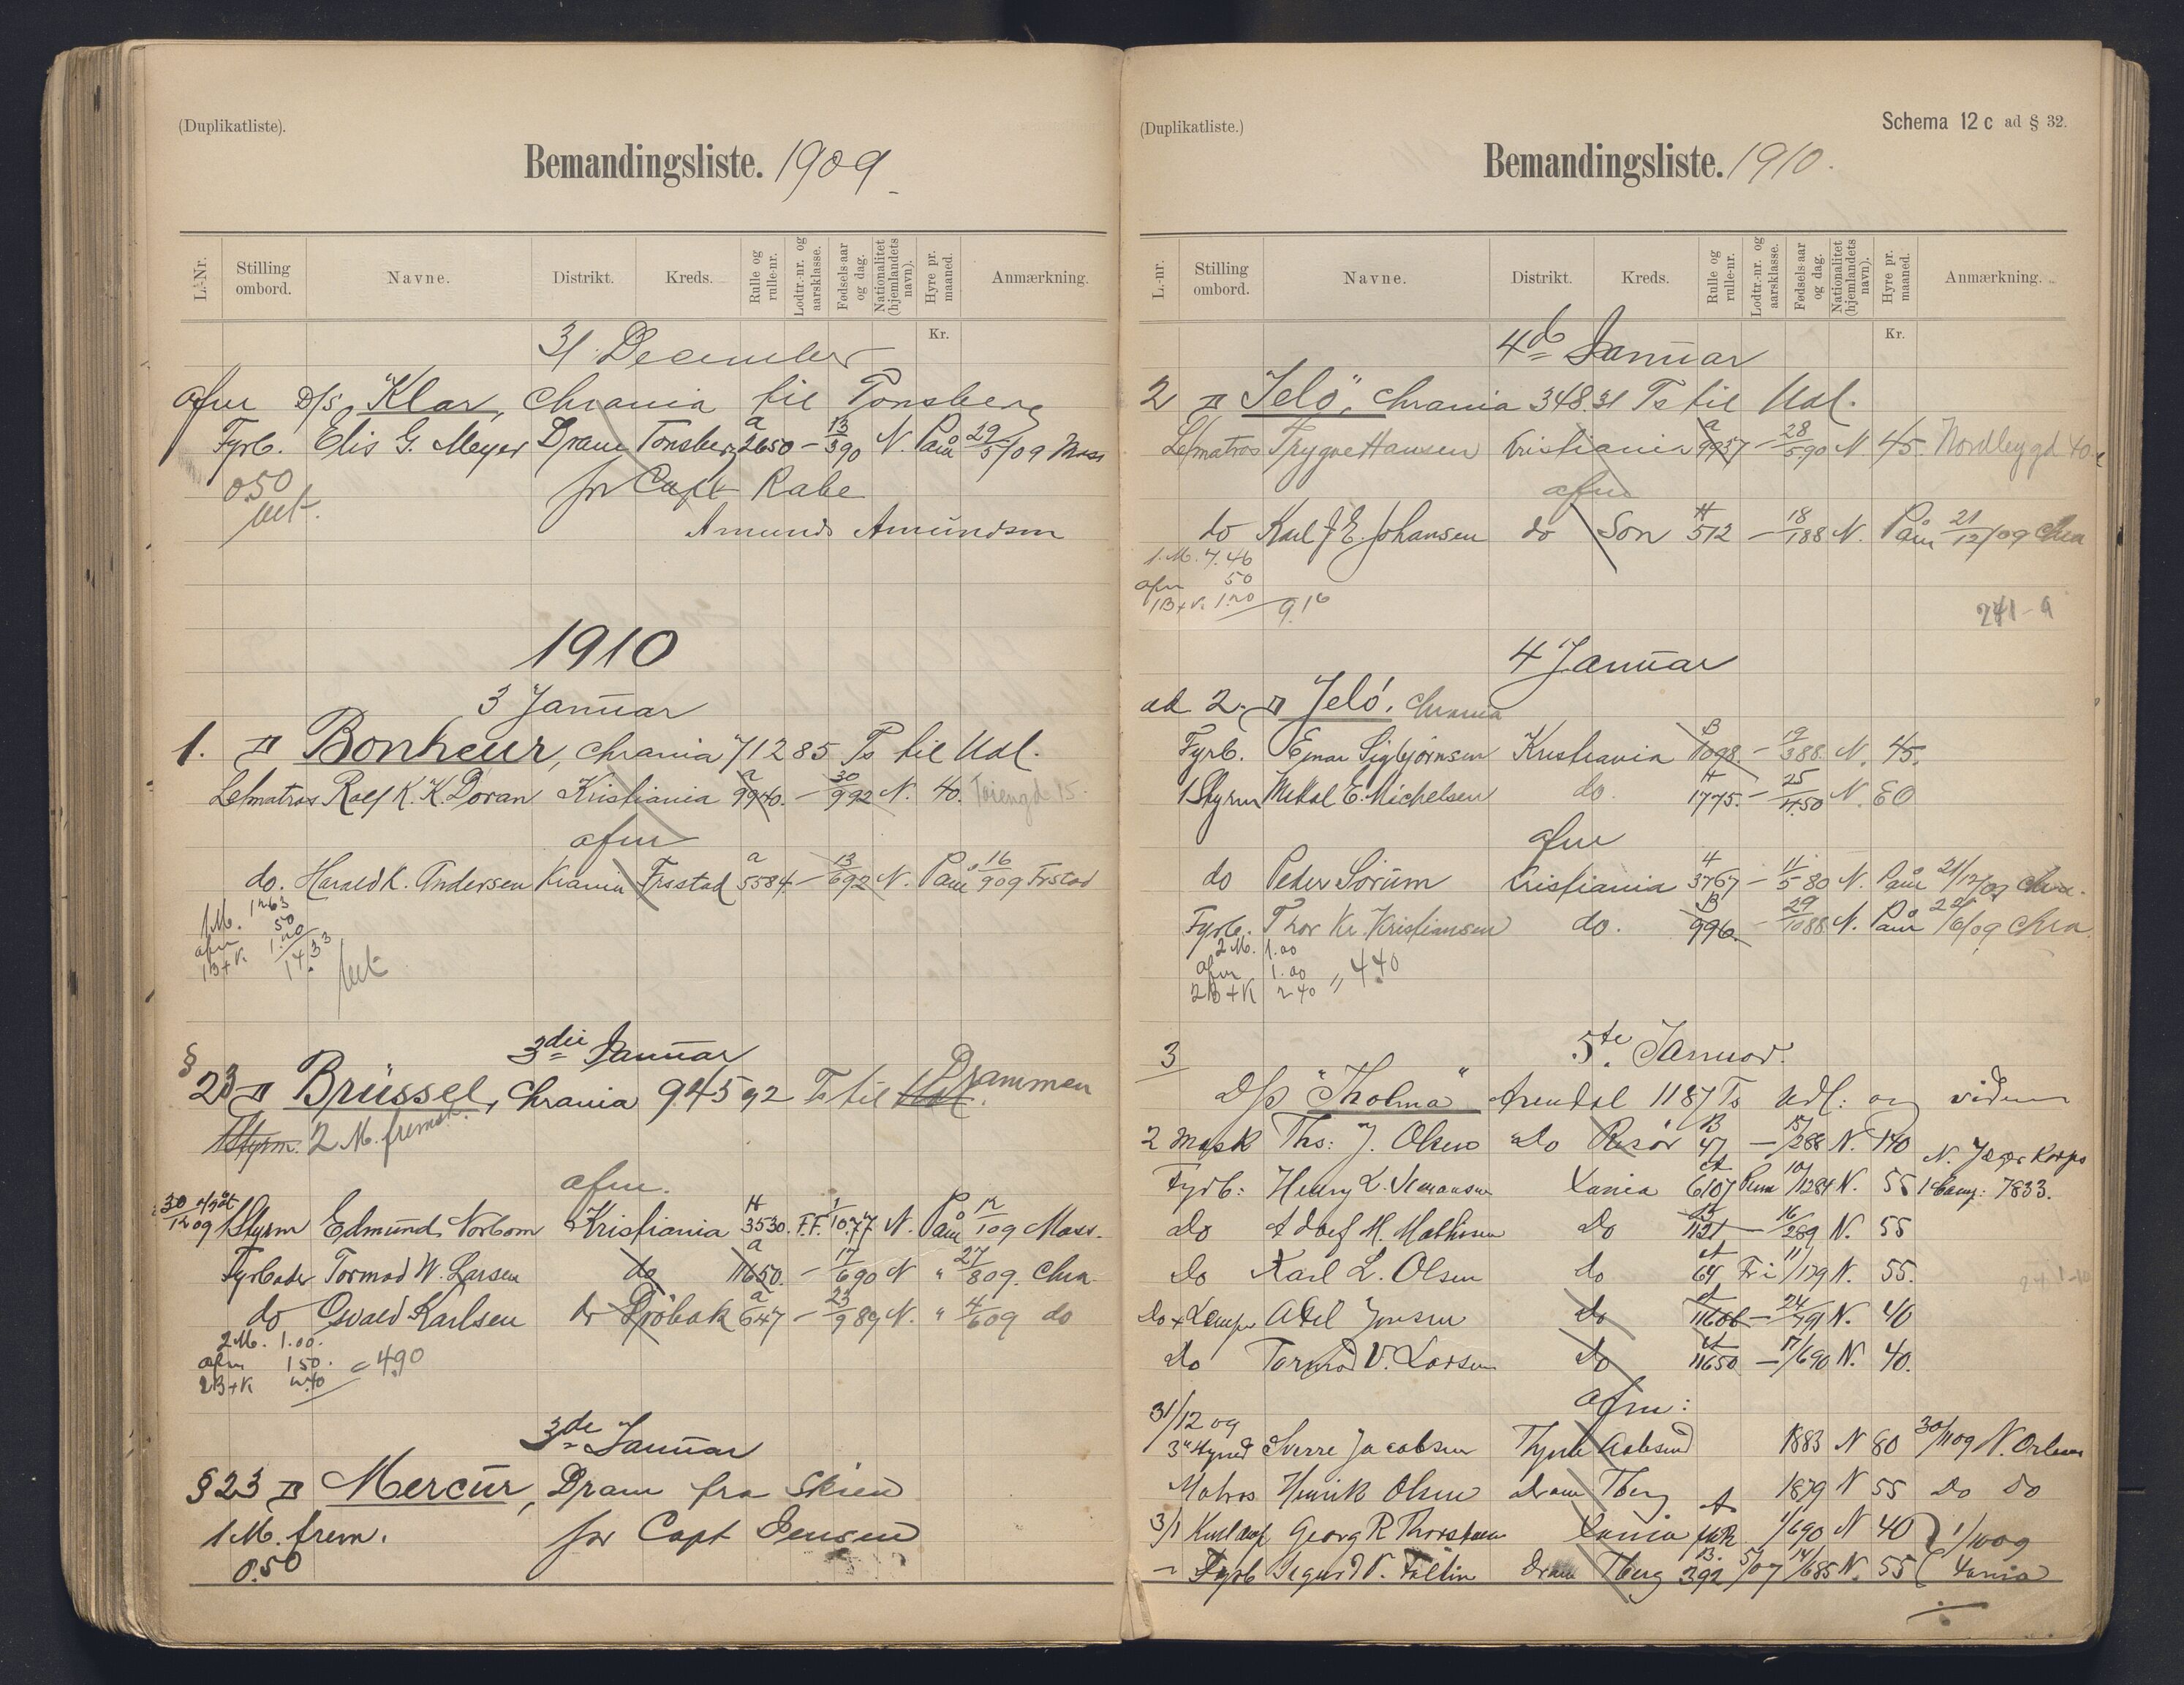 (Duplikatliste).
Bemandingsliste. 1909
L.-Nr. Stilling ombord. Navne. Distrikt. Kreds. Rulle og rulle-nr. Lodtr.-nr. og aarsklasse. Fødsels-aar og dag. Nationalitet (hjemlandets navn). Hyre pr. maaned. Anmærkning.
Kr.
31 December
afm D/S "Klar, Chrania til Tønsberg
Fyrb. Elis G. Meyer Dram Tønsberg a 2650 - 13/3 90 N. Paam 29/5 09 Moss
0.50 for Capt Rabe
Amunds Amundsen
1910
3 Januar
1. Bonheur, Chrania 71285 Ts til Udl.
Letmatros Rolf K. K. Doran Kristiania a 9940. - 30/9 92 N. 40.
afm
do. Harald K. Andersen Krania Frstad a 5584 - 13/6 92 N. Paam 16/9 09 Frstad
1 M. 12.63
afm 50
1 B + K. 1.20
14.33
3die Januar
§ 23 Brüssel, Chrania 945 92 Ts til Udl. Drammen
1 Styrm. 2 M. fremst.
afm.
30/12 09 1 Styrm Edmund Norbom Kristiania H 3530. F.F. 1/10 77 N. Paam 12/1 09 Moss.
Fyrbøder Tormod W. Larsen do a 11650. - 17/6 90 N " 27/8 09. Chra.
do Osvald Karlsen do Drøbak a 647 - 23/9 89 N. " 4/6 09 do
2 M. 1.00.
afm 150. = 4.90
2 B + K 2.40
3de Januar
§ 23 Mercur, Dram fra Skien
1 M. frem. for Capt Jensen
0.50
(Duplikatliste.)
Schema 12 c ad § 32.
Bemandingsliste. 1910.
L.-nr. Stilling ombord. Navne. Distrikt. Kreds. Rulle og rulle-nr. Lodtr.-nr. og aarsklasse. Fødsels-aar og dag. Nationalitet (hjemlandets navn). Hyre pr. maaned. Anmærkning.
Kr.
4de Januar
2 "Jelö", Chrania 348.31 Ts til Udl.
Letmatros Trygve Hansen Kristiania a 9937 - 28/5 90 N. 45
afm
do Karl J. E. Johansen do Son H 512 - 18/1 88 N. Paam 21/12 09 Chra
1. M. 7.46
afm 50
1 B + K. 1.20
9.16
241 - 9
4 Januar
ad 2. Jelö. Chrania
Fyrb. Einar Sigbjørnsen Kristiania B 1098. - 19/3 88. N. 45.
1 Styrm Mikal E. Michelsen do. H 1775. - 25/4 50 N. 80
afm
do Peder Sørum Kristiania H 3767 - 11/5 80 N. Paam 21/12 09 Chra.
Fyrb. Thor Kr. Kristiansen do. B 996. - 29/10 88 N. Paam 22/6 09 Chra.
2 M. 1.00
afm 1.00 " 4.40
2 B + K 2.40
3 5te Januar.
D/S "Tholma" Arendal 1187 Ts Udl: og videre
2 Mask Ths: J. Olsen Do Risör B 47 - 15/2 88 N. 140
Fyrb: Henry L. Kania 6107 10/12 84 N. 55 N. Jæger Korps 1 Comp: 7833.
Do Adolf H. Mathisen Do 1121 - 16/2 89 N. 55
Do Karl L. Olsen do 64 Fri 11/1 79 N. 55.
Do + Lemper Axel Jensen Do 11606 - 24/ 91 N. 40
Do Tormod V. Larsen Do 11650 - 17/6 90 N. 40.
31/12 09 afm:
Sverre Jacobsen Aalesund 1883 N 80 30/11 09 N. Orleans
Matros Henrik Olsen Dram Tberg 1879 N 55 Do Do
3/1 Georg R. Kania 1/6 90 N 40 1/10 09
- Fyrb Sigurd V. Dram Tberg B. 392 5/07 14/6 85 N. 55 Kania